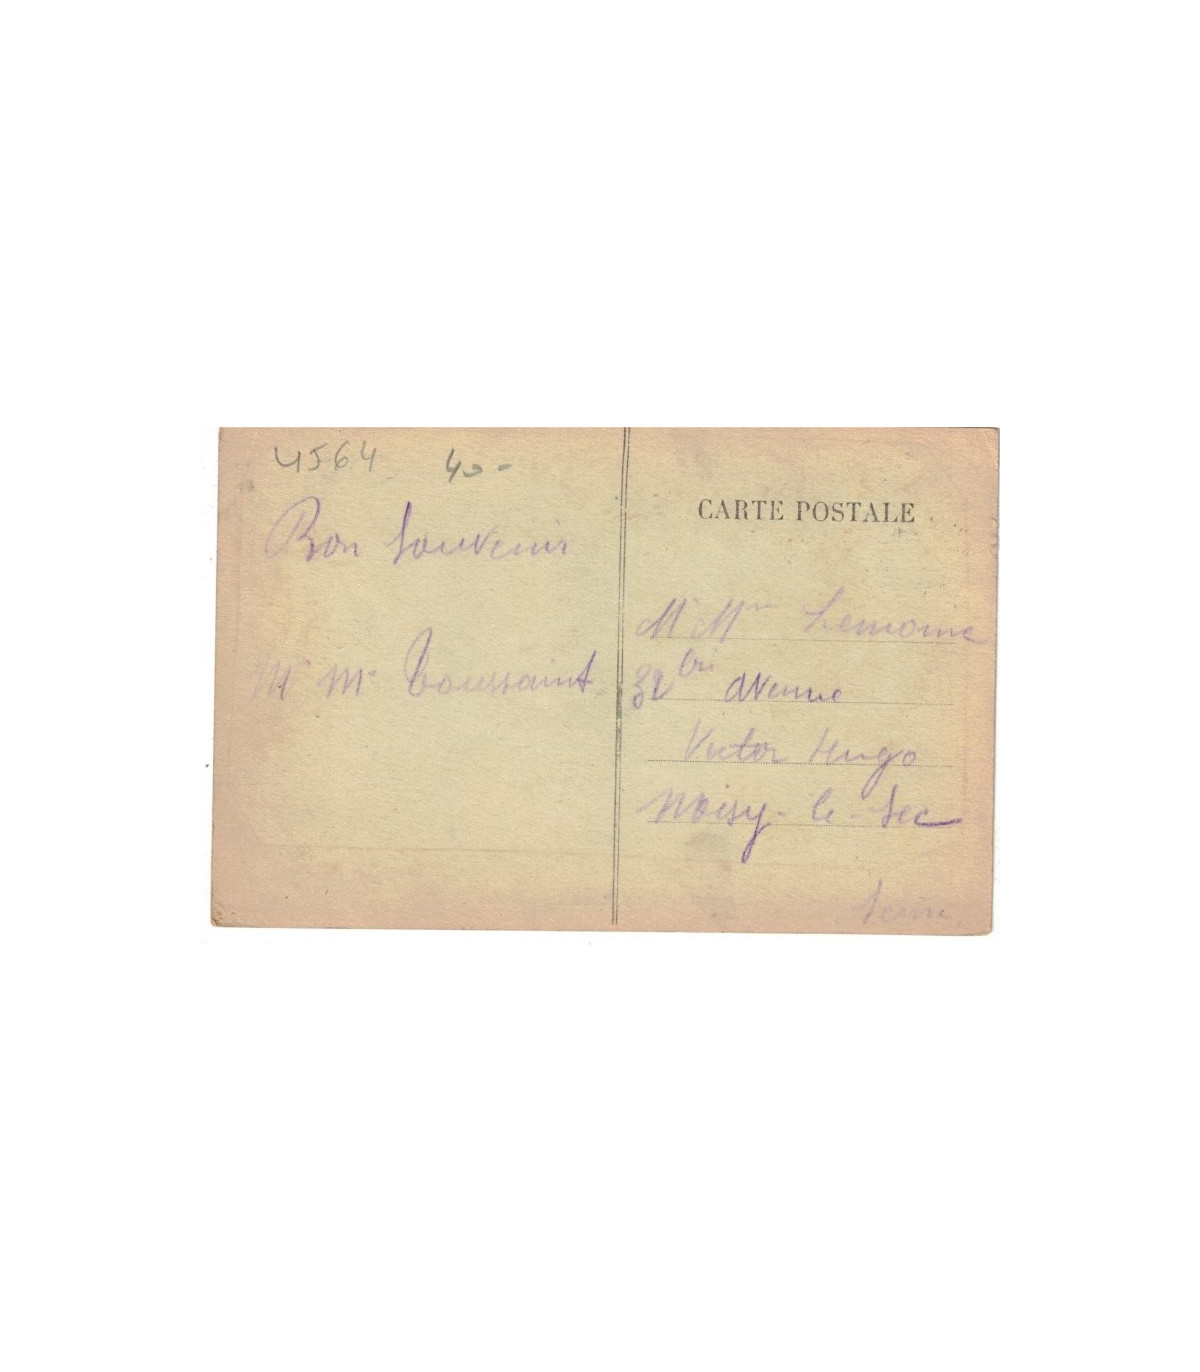 4564 40-
Bon Souvenir
Mr Me Toussaint
CARTE POSTALE
Mr Mme Lemoine
32 bis Avenue
Victor Hugo
Noisy-le-Sec
Seine